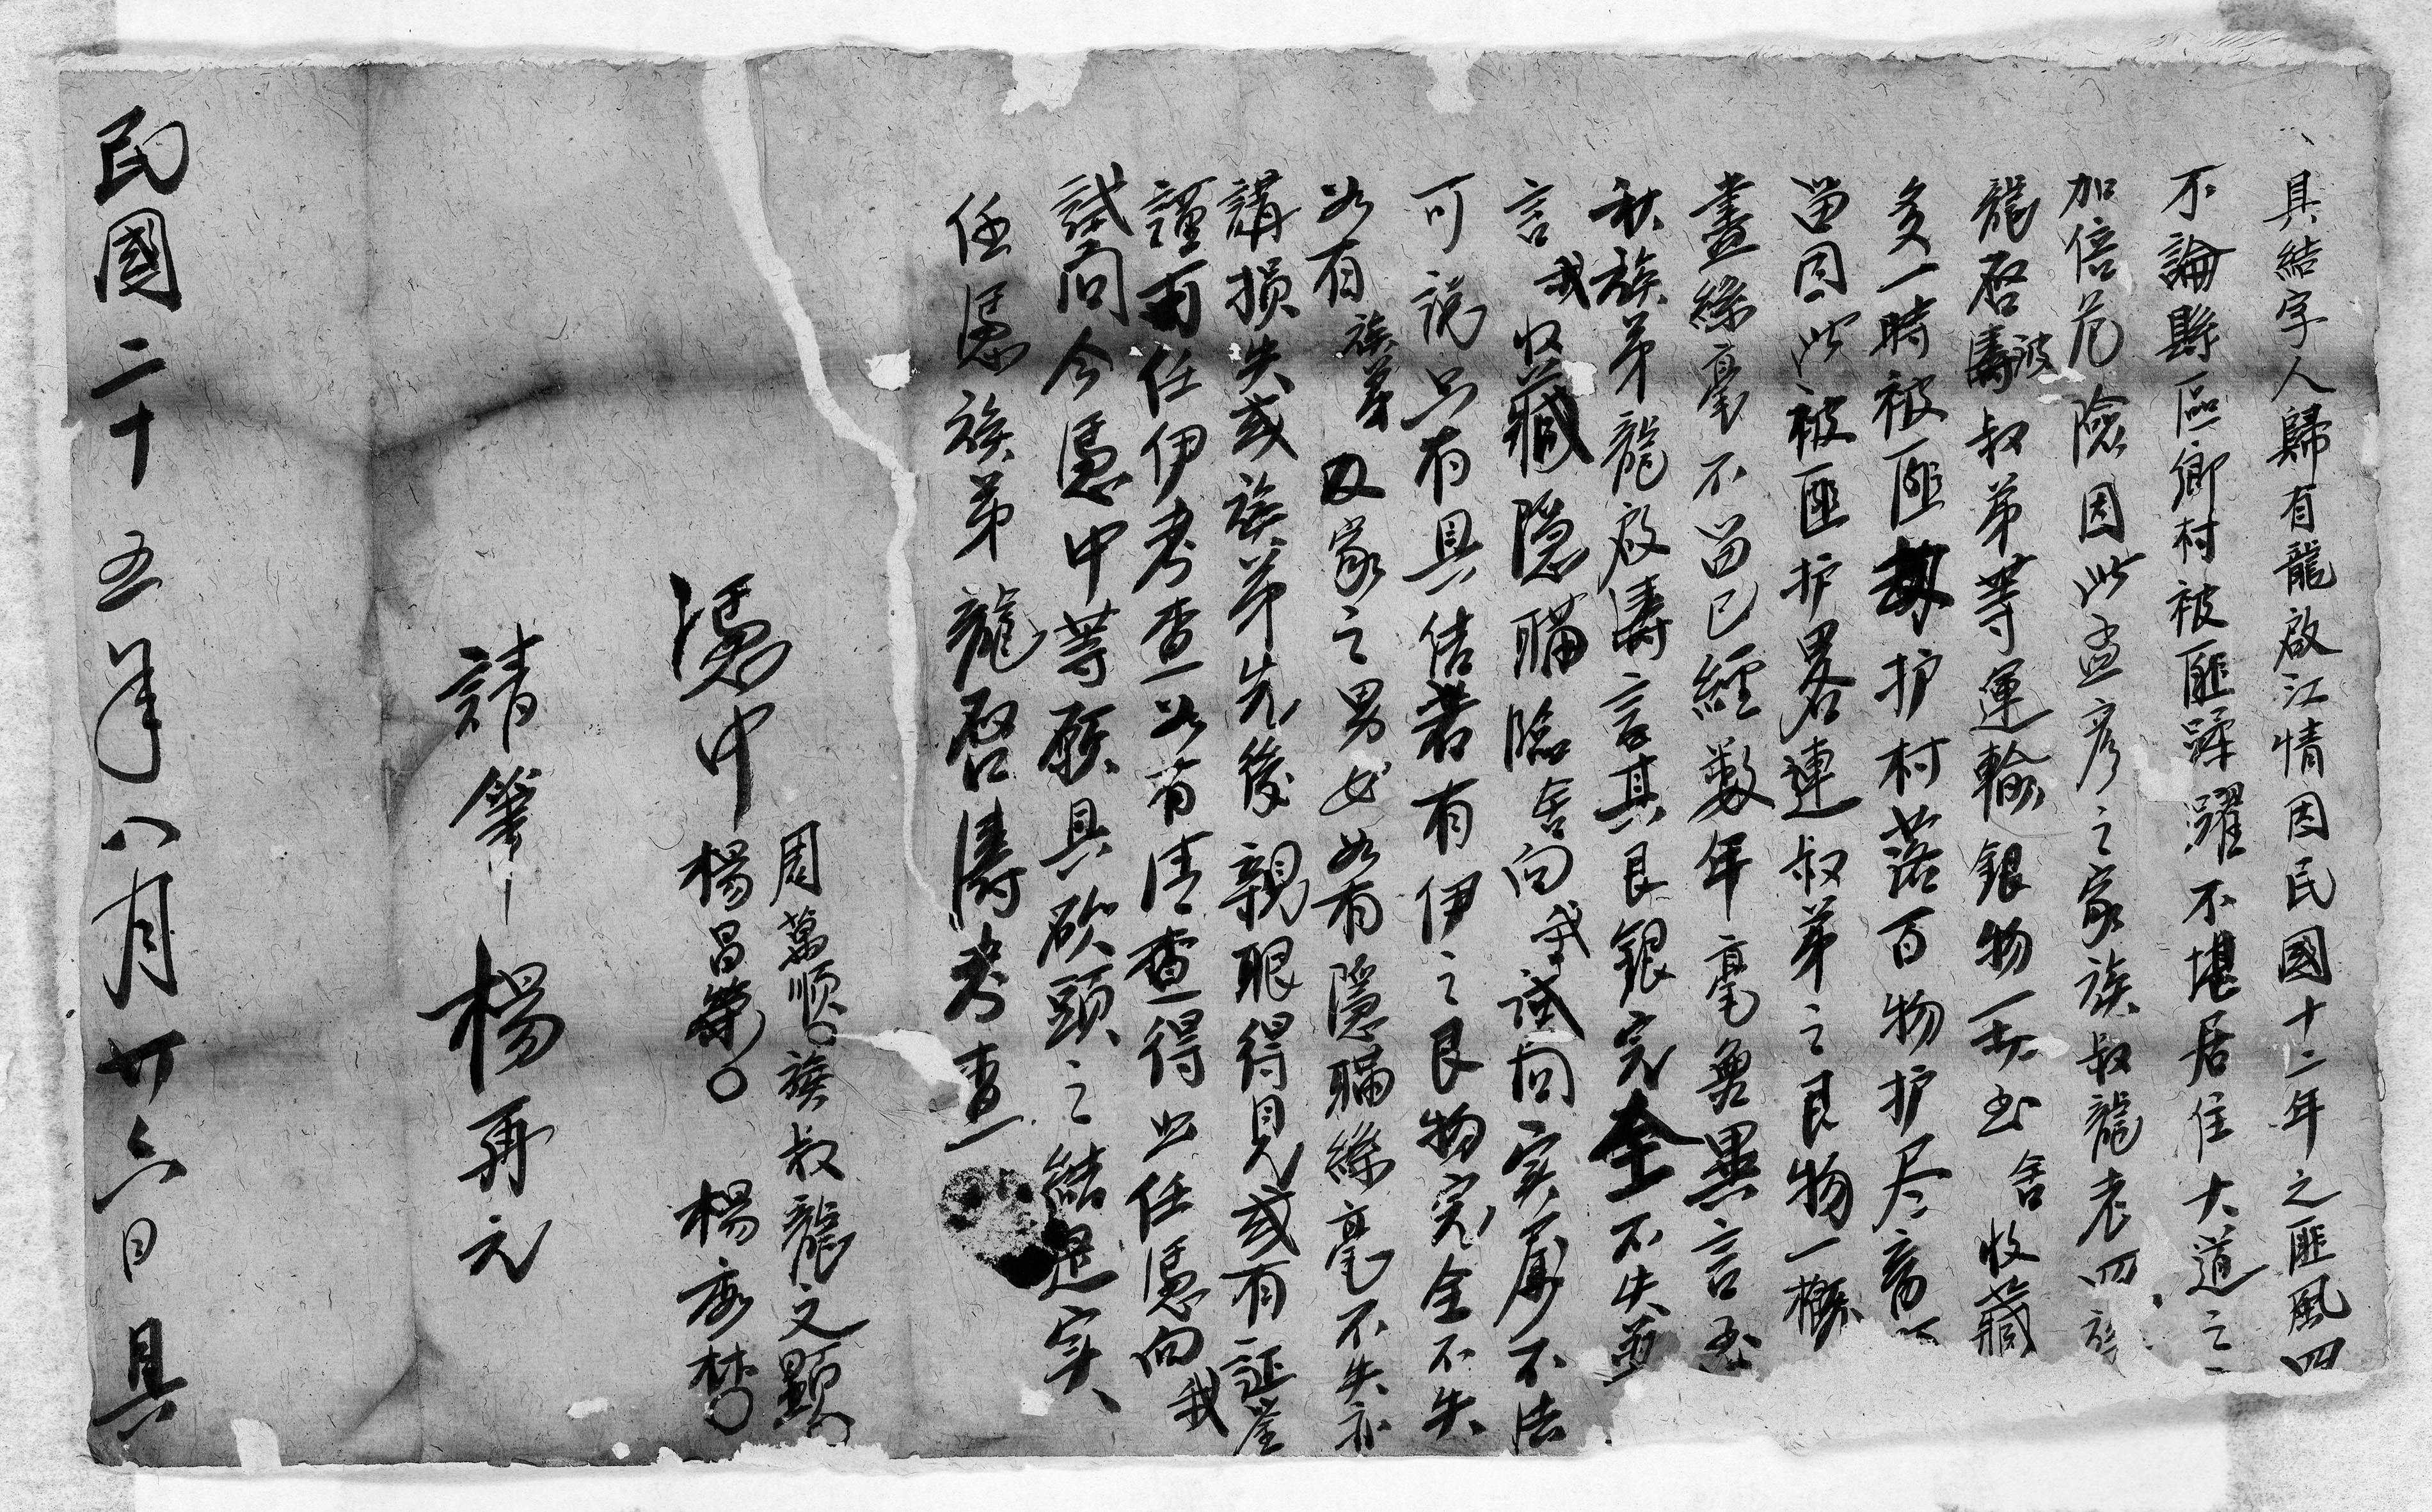 具結字人歸有龍啟江情因民國十二年之匪風四
不論縣區鄉村被匪蹂躪不堪居住大道之
加倍危險因此孟彥之家族叔龍老四
龍啓濤被叔弟等運輸銀物一共出舍收藏
多一時被匪劫护村落百物护尽竟
留因此被匪护畧連叔弟之艮物一概
盡絲毫不留已經数年毫無異言
秋族弟龍啟濤言其艮銀完全不失並
言我收藏隐瞒臨舍向我试问实属不法
可説只有具结若有伊之艮物完全不失
如有族弟及家之男女如有隱瞒絲毫不失亦
講損失或族弟先後親眼得見或有証崖
謹可任伊考查如有清查得出任憑向我
試问今憑中等願具砍頭之結是实
任憑族弟龍啓濤考查
憑中 周萬順 族叔龍文顯
楊昌榮 楊秀林
請筆 楊再元
民國二十五年八月廿六日具